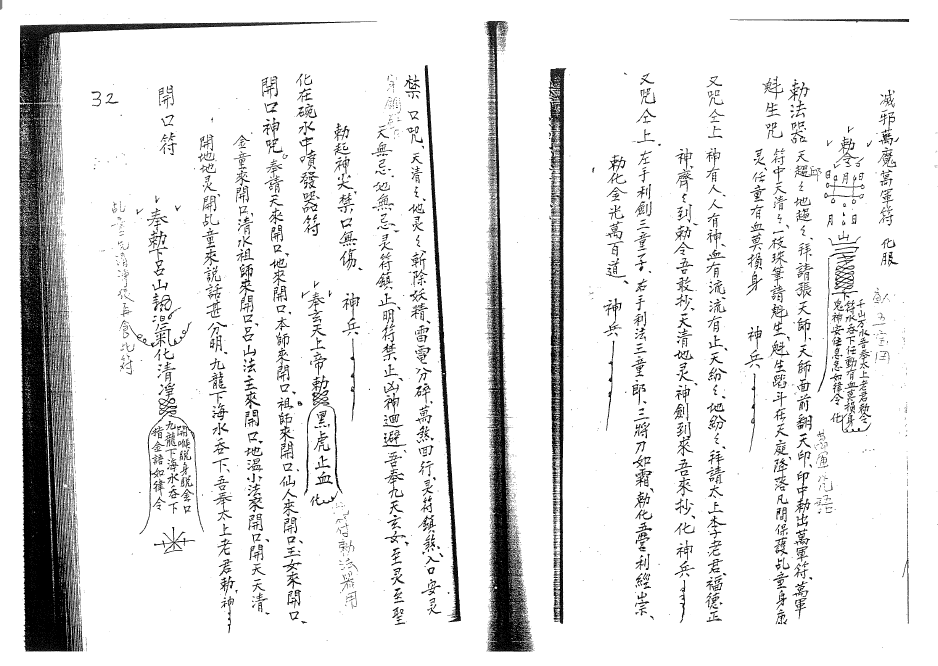 滅邪萬魔萬軍符 化服
勅令
日月日
千山万水吾奉太上老君勅令
餘水吞下任動有血莫損身
鬼神安住急急如律令 化
勅法器 天超々地超々、拜請張天師、天師面前翻天印、印中勅出萬軍符、萬軍
邱
魁生咒 符中天清々、一枝珠筆請魁生、魁生踏斗在天庭、降落凡間保護乩童身康
灵、任童有血莫損身 神兵
又咒仝上 神有人、人有神、血有流、流有止、天紛々、地紛々、拜請太上李老君福德正
神、齊々到、勅令吾敢抄、天清地灵、神劍到來、吾來抄、化 神兵
又咒仝上、左手利劍三童子、右手利法三童郎、三將刀如霜、勅化五營利經崇、
勅化金光萬百道、 神兵
禁口咒、天清々、地灵々、斬除妖精、雷電分碎、萬煞回行、灵符鎮煞、入口安灵
天無忌、地無忌、灵符鎮止、明符禁止、凶神迴避、吾奉九天玄女、至灵至聖
勅起神火、禁口無傷、 神兵
化在碗水中噴發器符
奉玄天上帝勅 黑虎止血 化
符勅法器用
開口神咒。奉請天來開口、地來開口、本師來開口、祖師來開口、仙人來開口、玉女來開口、
金童來開口、清水祖師來開口、呂山法主來開口、地溫小法家開口、開天天清、
開地地灵、開乩童來說話甚分明、九龍下海水吞下、吾奉太上老君勅、神
開口符
奉勅下呂山 混氣化清淨
開喉脫身脫金口
九龍下海水吞下
語如律令
32